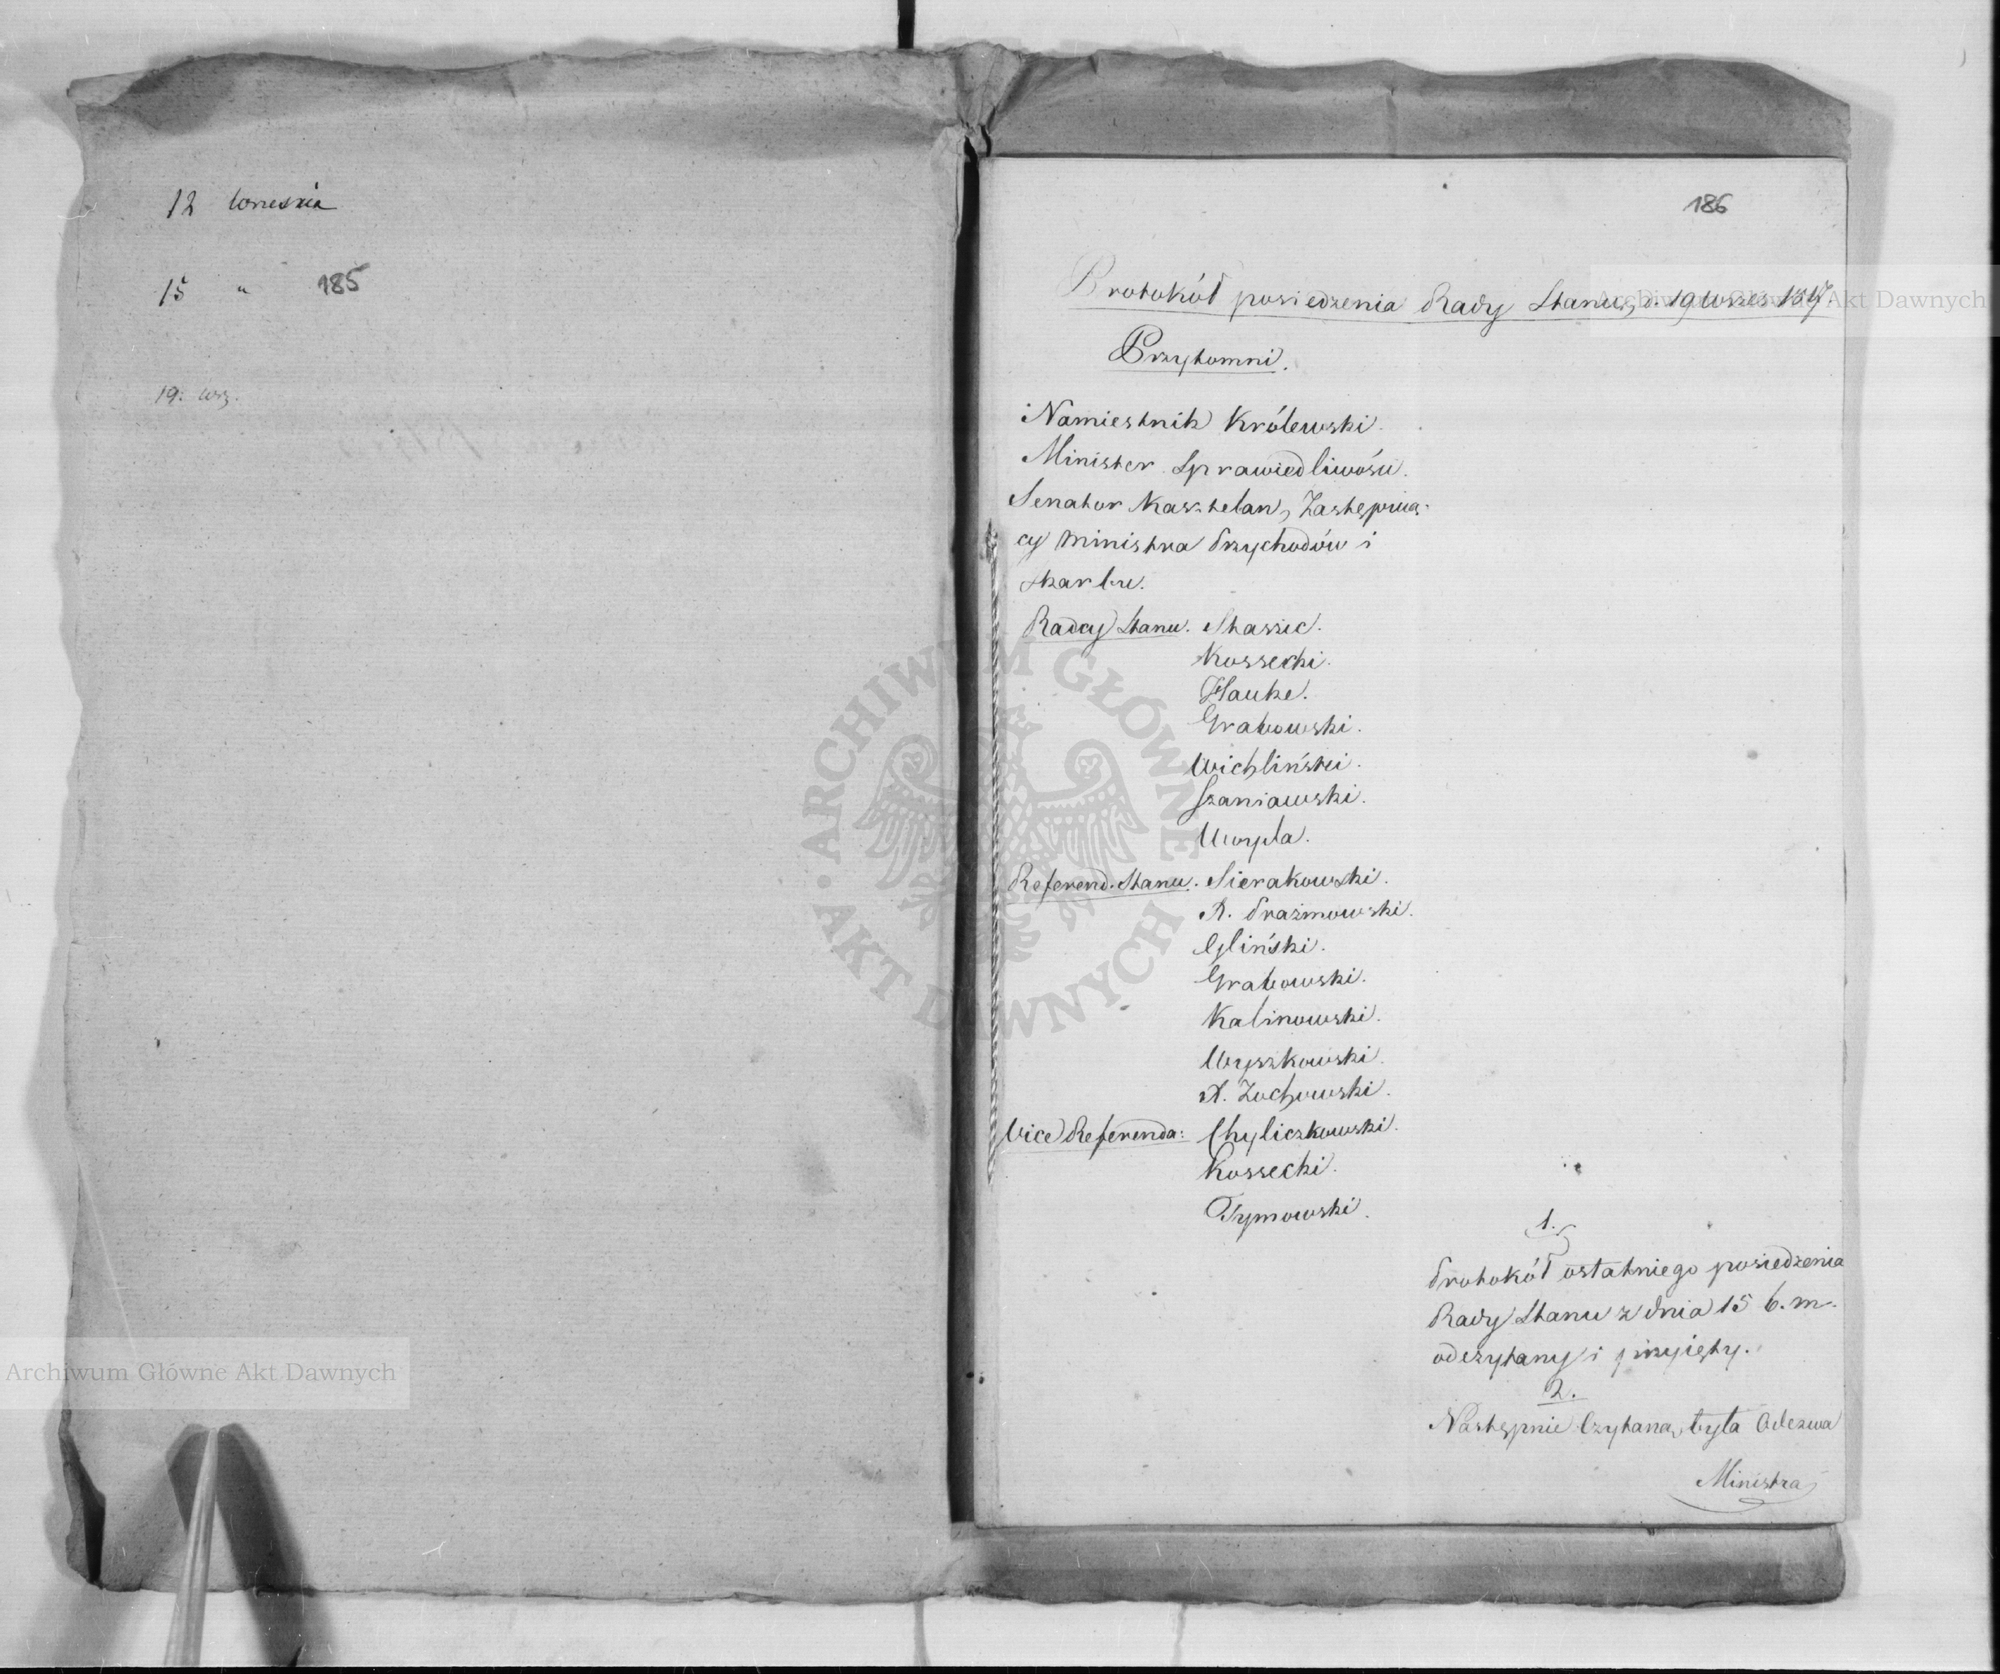 12 Września
15 " 185
19. wrz.
186
Protokół posiedzenia Rady Stanu, d. 19 Wrzes 1817.
Przytomni.
Namiestnik Królewski.
Minister Sprawiedliwości.
Senator Kasztelan, Zastępuią-
cy Ministra Przychodów i
Skarbu.
Radcy Stanu. Staszic.
Kossecki.
Hauke.
Grabowski.
Wichliński.
Szaniawski.
Woyda.
Referend. Stanu. Sierakowski.
A. Prażmowski.
Gliński.
Grabowski.
Kalinowski.
Wyszkowski.
A. Żochowski.
Vice Referenda: Chyliczkowski.
Kossecki.
Tymowski.
1.
Protokół ostatniego posiedzenia
Rady Stanu z dnia 15 b. m.
odczytany i przyięty.
2.
Następnie Czytana, była Odezwa
Ministra
Archiwum Główne Akt Dawnych
Archiwum Główne Akt Dawnych
ARCHIWUM GŁÓWNE
AKT DAWNYCH